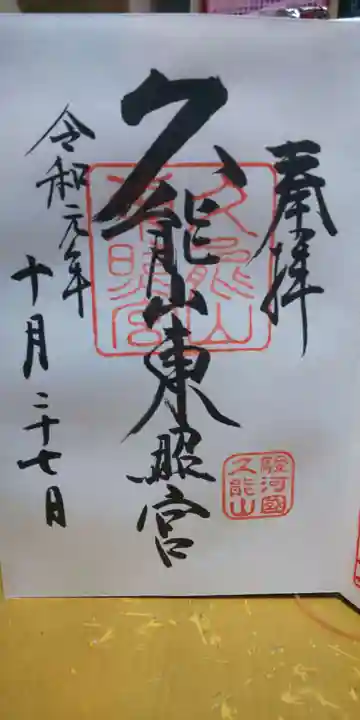 奉拝
駿河國
久能山
久能山東照宮
久能山
東照宮
令和元年
十月二十七日